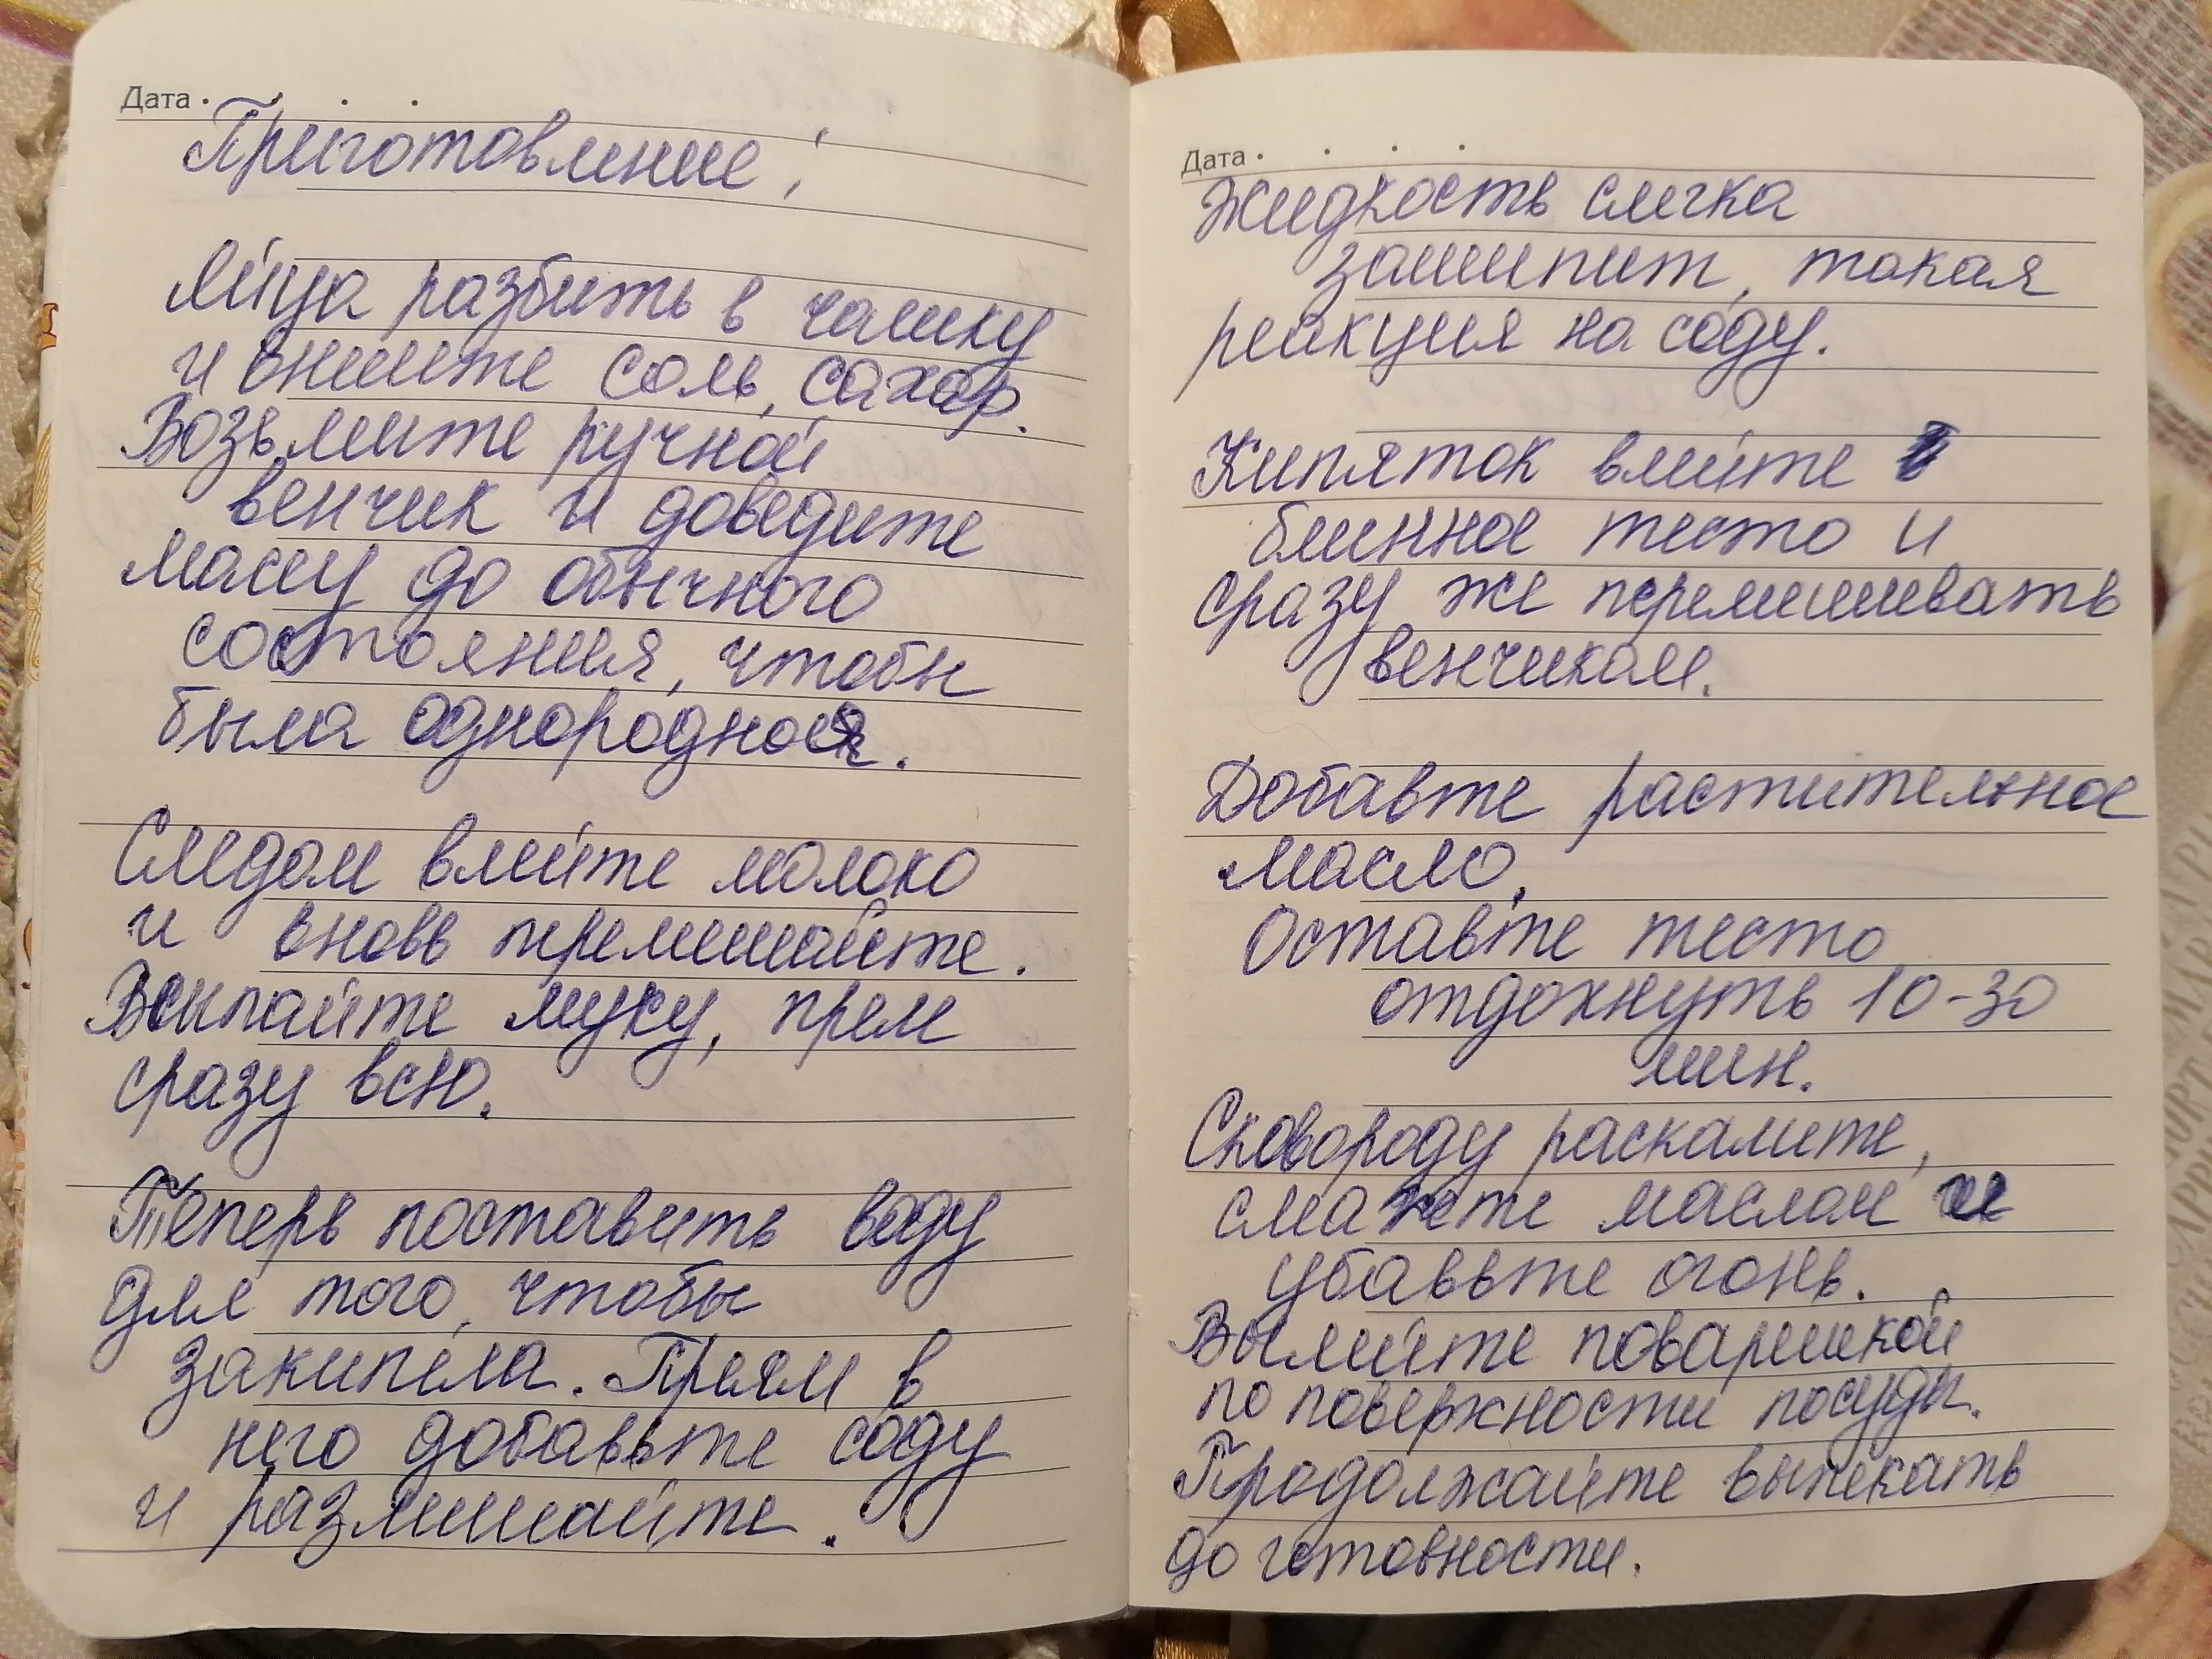 Дата . . . .
Приготовление:
Яйца разбить в чашку
и внешите соль, сахар.
Возьмите ручной
венчик и доведите
массу до обычного
состояния, чтобы
была однородная.
Следом влейте молоко
и вновь перемешайте.
Всыпайте муку, прям
сразу всю.
Теперь поставить воду
для того, чтобы
закипела. Прям в
него добавьте соду
и размешайте.
Дата . . . .
Жидкость слегка
зашипит, такая
реакция на соду.
Кипяток влейте в
блинное тесто и
сразу же перемешивать
венчиком.
Добавте растительное
масло.
Оставте тесто
отдохнуть 10-30
мин.
Сковороду раскалите,
смажте маслом и
убаввте огонь.
Вылейте поварешкой
по поверхности посуды.
Продолжайте выпекать
до готовности.